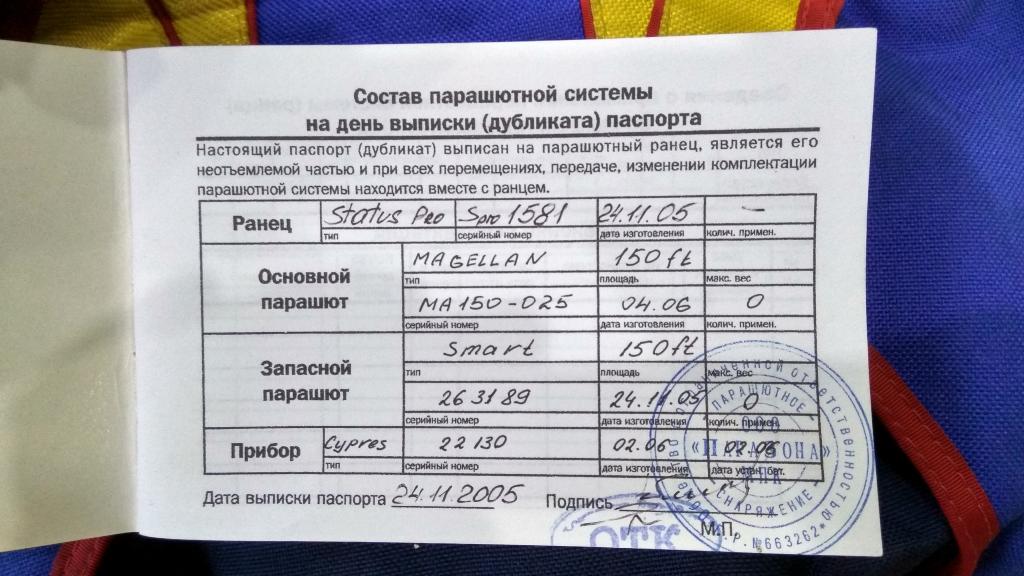 Состав парашютной системы
на день выписки (дубликата) паспорта
Настоящий паспорт (дубликат) выписан на парашютный ранец, является его
неотъемлемой частью и при всех перемещениях, передаче, изменении комплектации
парашютной системы находится вместе с ранцем.
Ранец Status Pro Spro 1581 24.11.05 —
тип серийный номер дата изготовления колич. примен.
Основной парашют
MAGELLAN 150 ft
тип площадь макс. вес
MA150-025 04.06 0
серийный номер дата изготовления колич. примен.
Запасной парашют
Smart 150ft
тип площадь макс. вес
263189 24.11.05 0
серийный номер дата изготовления колич. примен.
Прибор Cypres 22130 02.06 02.06
тип серийный номер дата изготовления дата устан. бат.
Дата выписки паспорта 24.11.2005 Подпись
М.П.
ОТК
ограниченной ответственностью
ПАРАШЮТНОЕ
ООО
СНАРЯЖЕНИЕ
Р.№663262